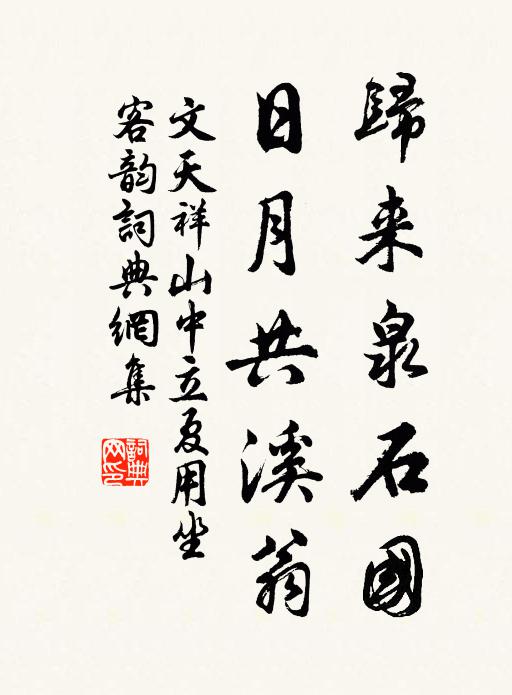 歸来泉石國
日月共溪翁
文天祥山中立夏用坐
客韵詞典網集
詞典網印